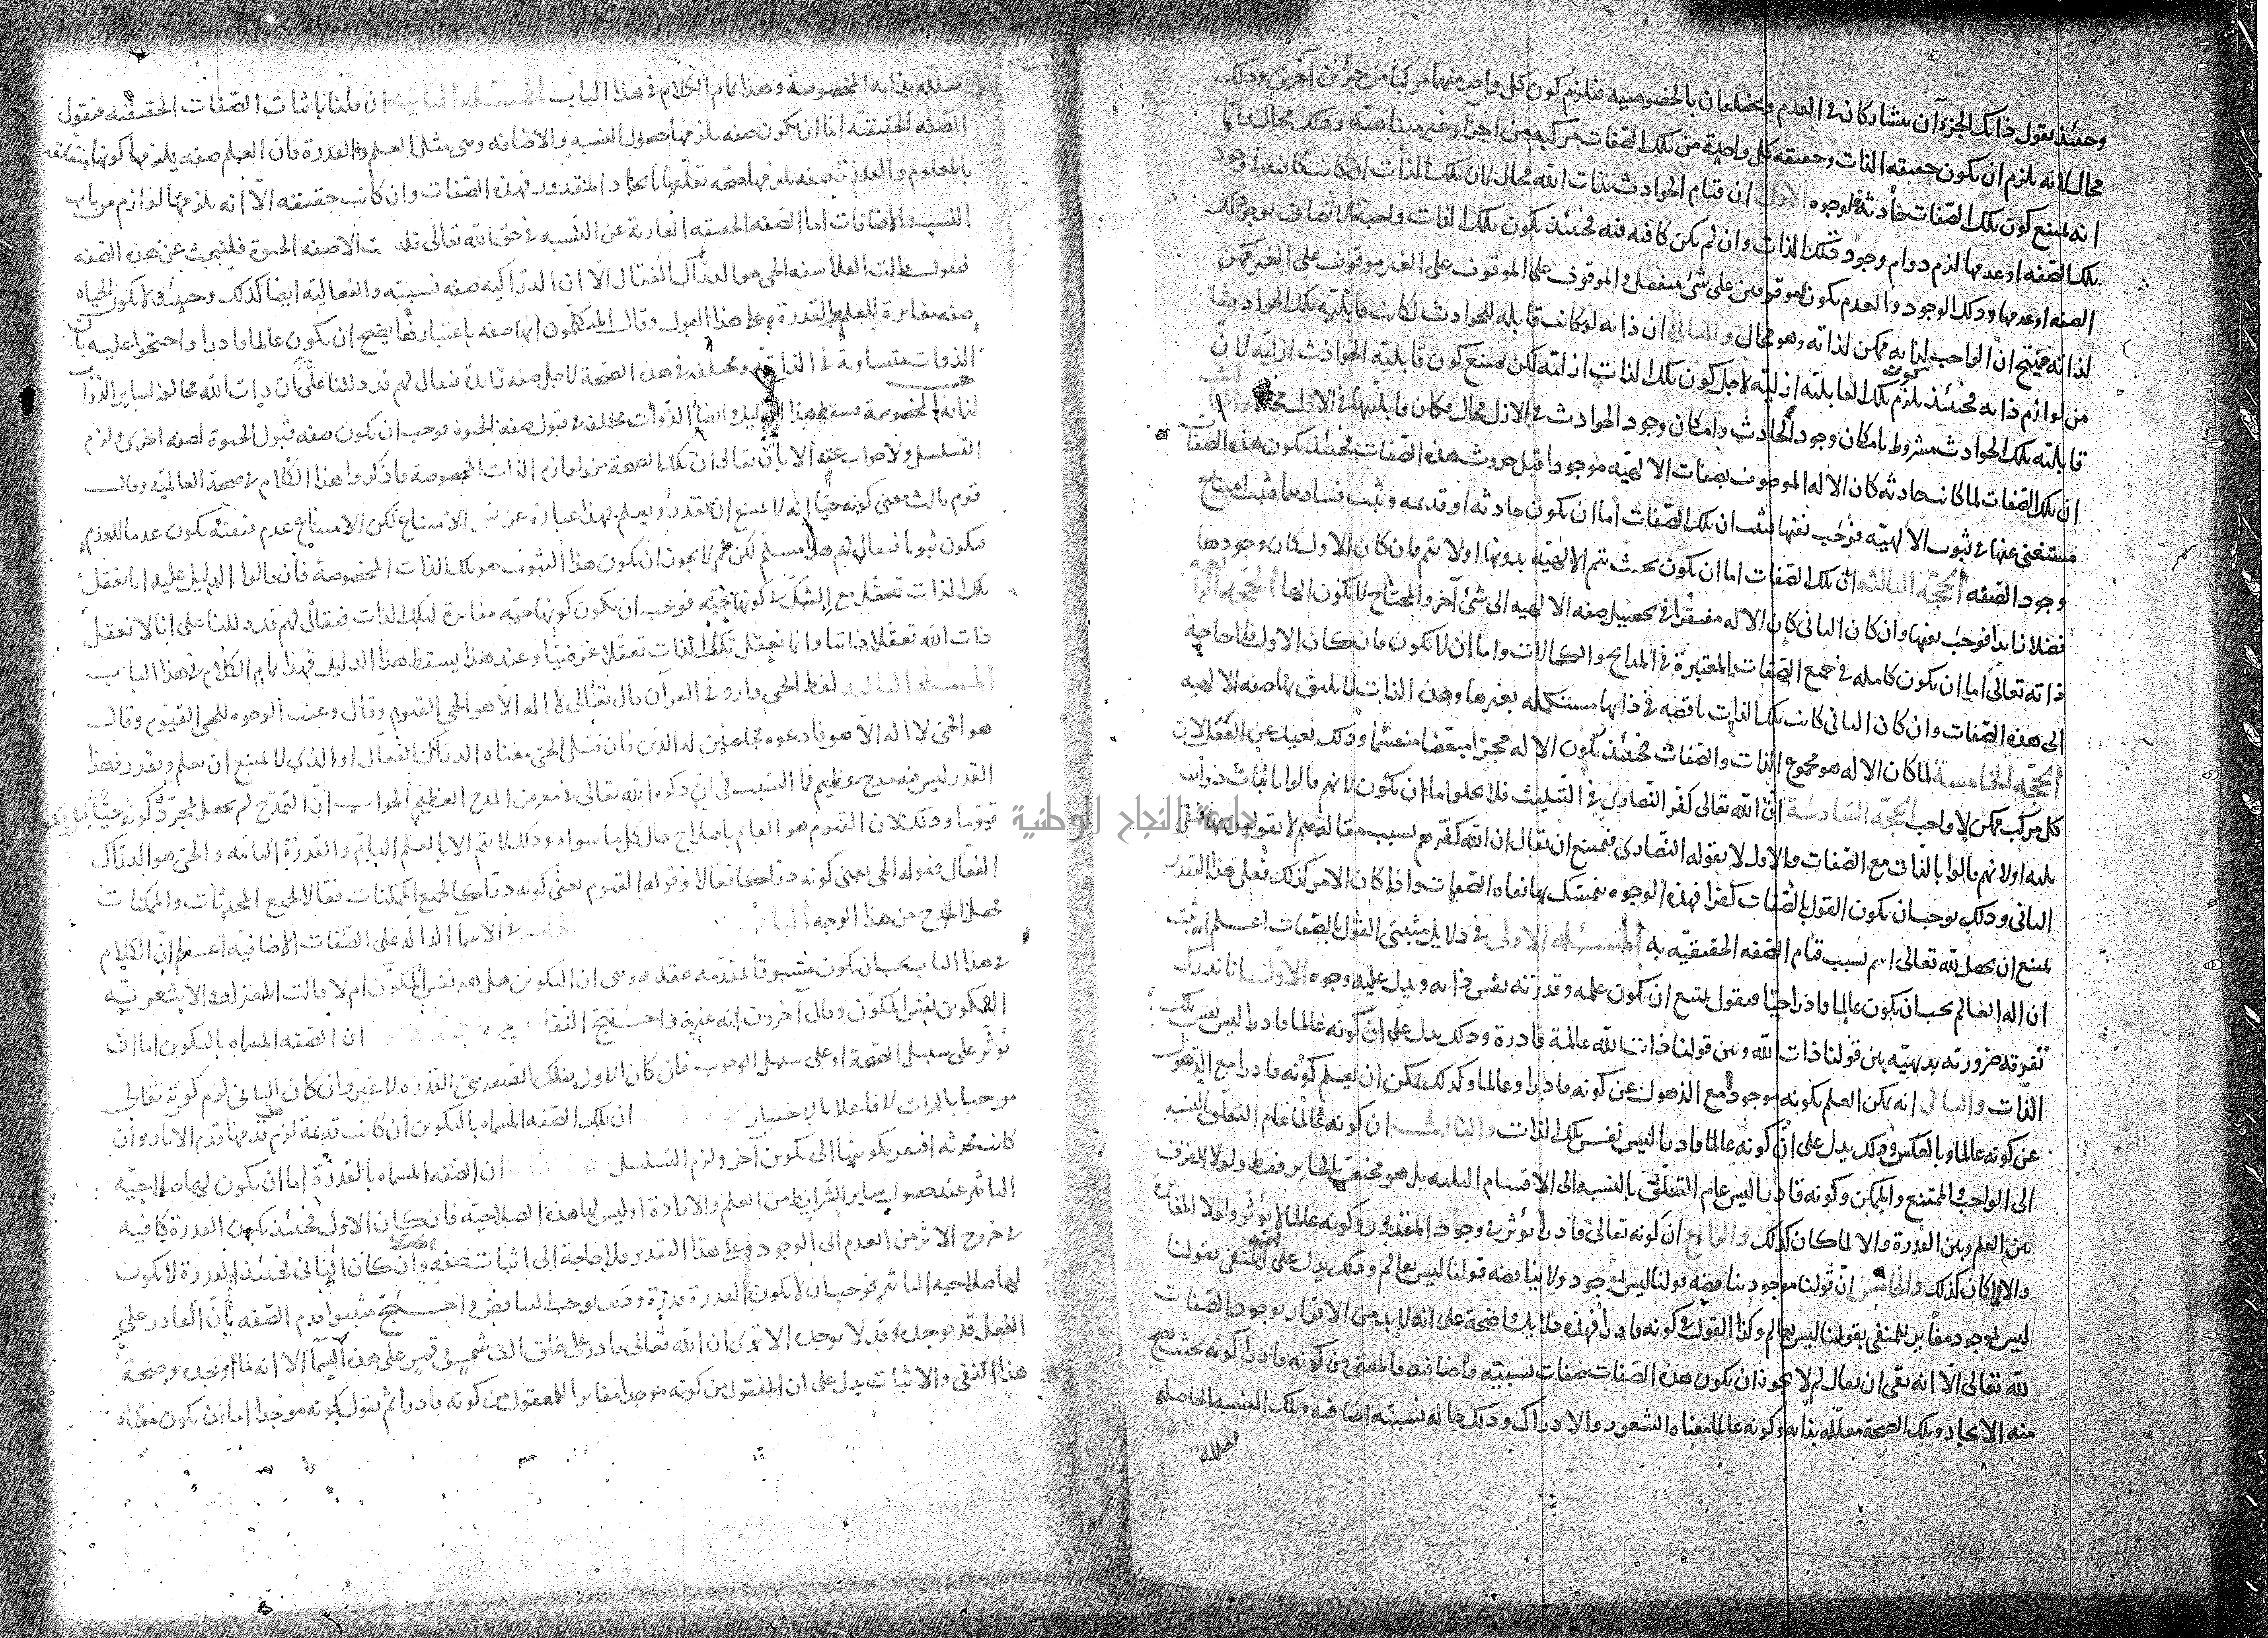 وحينئذ نقول ذانك الجزءآن يتشاركان في القدم ويختلفان بالخصوصية فيلزم كون كل واحد منهما مركبا من جزئين آخرين وذلك
محال لانه يلزم ان يكون حقيقه الذات وحقيقه كل واحدة من تلك الصفات مركبه من اجزاء غير متناهية وذلك محال واما
انه يمتنع كون تلك الصفات حادثة فلوجوه الاول ان قيام الحوادث بذات الله محال لان تلك الذات ان كانت كافيه في وجود
تلك الصفه او عدمها لزم دوام وجود تلك الذات وان لم يكن كافيه فيه فحينئذ يكون تلك الذات واجبة الاتصاف بوجود تلك
الصفه او عدمها وذلك الوجود والعدم يكون موقوفين على شئ منفصل والموقوف على الموقوف على الغير موقوف على الغير ممكن
لذاته فينتج ان الواجب لذاته ممكن لذاته وهو محال والثاني ان ذاته لو كانت قابله للحوادث لكانت قابليه تلك الحوادث
من لوازم ذاته فحينئذ يلزم كون تلك القابلية ازلية لاجل كون تلك الذات ازلية لكن يمتنع كون قابلية الحوادث ازلية لان
قابلية تلك الحوادث مشروط بامكان وجود الحادث وامكان وجود الحوادث في الازل محال فكان قابليتها في الازل محال والثالث
ان تلك الصفات لما كانت حادثة كان الاله الموصوف بصفات الالهية موجودا قبل حدوث هذه الصفات فحينئذ يكون هذه الصفات
مستغنى عنها في ثبوت الالهية فوجب نفيها فثبت ان تلك الصفات اما ان يكون حادثة او قديمه وثبت فسادهما فثبت امتناع
وجود الصفه الحجة الثالثة ان تلك الصفات اما ان يكون بحيث يتم الالهية بدونها او لا يتم فان كان الاول كان وجودها
فضلا زائدا فوجب نفيها وان كان الثاني كان الاله مفتقرا في تحصيل صفه الالهيه الى شئ آخر والمحتاج لا يكون الها الحجة الرابعه
ذاته تعالى اما ان يكون كامله في جميع الصفات المعتبرة في المدايح والكمالات واما ان لا يكون فان كان الاول فلا حاجة
الى هذه الصفات وان كان الثاني كانت تلك الذات ناقصه في ذاتها مستكمله بغيرها وهذه الذات لا يليق بها صفه الالهيه
الحجة الخامسة لما كان الاله هو مجموع الذات والصفات فحينئذ يكون الاله مجزا مبعضا منقسما وذلك بعيد عن العقل لان
كل مركب ممكن لا واجب الحجة السادسة ان الله تعالى كفر النصارى في التثليث فلا يخلو اما ان يكون لانهم قالوا باثبات ذوات
ثلثه او لانهم قالوا بالذات مع الصفات والاول لا يقوله النصارى فيمتنع ان يقال ان الله كفرهم بسبب مقالة هم لا يقولون بها فبقي
الثاني وذلك يوجب ان يكون القول بالصفات كفرا فهذه الوجوه يتمسك بها نفاه الصفات واذا كان الامر كذلك فعلى هذا التقدير
يمتنع ان يحصل لله تعالى اسم بسبب قيام الصفه الحقيقيه به المسئله الاولى في دلايل مثبتي القول بالصفات اعلم انه ثبت
ان اله العالم يجب ان يكون عالما قادرا حيا فنقول يمتنع ان يكون علمه وقدرته نفس ذاته ويدل عليه وجوه الاول انا ندرك
تفرقة ضروريه بديهيه بين قولنا ذات الله وبين قولنا ذات الله عالمة قادرة وذلك يدل على ان كونه عالما قادرا ليس نفس تلك
الذات والثاني انه يمكن العلم بكونه موجودا مع الذهول عن كونه قادرا وعالما وكذلك يمكن ان يعلم كونه قادرا مع الذهول
عن كونه عالما وبالعكس وذلك يدل على ان كونه عالما قادرا ليس نفس تلك الذات والثالث ان كونه عالما عام التعلق بالنسبه
الى الواجب والممتنع والممكن وكونه قادرا ليس عام التعلق بالنسبه الى الاقسام الثلثه بل هو مختص بالجايز فقط ولولا الفرق
بين العلم وبين القدرة والا لما كان كذلك والرابع ان كونه تعالى قادرا يؤثر في وجود المقدور وكونه عالما لا يؤثر ولولا المغايرة
والا لما كان كذلك والخامس ان قولنا موجود يناقضه قولنا ليس بموجود ولا يناقضه قولنا ليس بعالم وذلك يدل على ان المنفى بقولنا
ليس بموجود مغاير للمنفى بقولنا ليس بعالم وكذا القول في كونه قادرا فهذه دلايل واضحة على انه لا بد من الاقرار بوجود الصفات
لله تعالى الا انه بقي ان يقال لم لا يجوز ان يكون هذه الصفات صفات نسبيه واضافيه فالمعنى من كونه قادرا كونه بحيث يصح
منه الايجاد وتلك الصحة معلله بذاته وكونه عالما معناه الشعور والادراك وذلك حاله نسبيه اضافيه وتلك النسبه الحاصله
معلله
معلله بذاته المخصوصة وهذا تمام الكلام في هذا الباب المسئله الثانيه ان قلنا باثبات الصفات الحقيقيه فنقول
الصفه الحقيقيه اما ان يكون صفه يلزمها حصول النسبه والاضافه وهى مثل العلم والقدرة فان العلم صفه يلزمها كونها متعلقه
بالمعلوم والقدرة صفه يلزمها صحه تعلقها بايجاد المقدور فهذه الصفات وان كانت حقيقيه الا انه يلزمها لوازم من باب
النسب والاضافات اما الصفه الحقيقيه العارية عن النسبه في حق الله تعالى فليست الا صفه الحيوة فلنبحث عن هذه الصفه
فنقول قالت الفلاسفه الحي هو الدراك الفعال الا ان الدراكيه صفه نسبيه والفعاليه ايضا كذلك وحينئذ لا يكون الحياه
صفه مغايرة للعلم والقدرة على هذا القول وقال المتكلمون انها صفه باعتبارها يصح ان يكون عالما قادرا واحتجوا عليه بان
الذوات متساوية في الذاتيه ومختلفه في هذه الصحة لاجل صفه زايدة فيقال لهم قد دللنا على ان ذات الله مخالفة لساير الذوات
لذاته المخصوصة فسقط هذا الدليل وايضا الذوات مختلفه في قبول صفه الحيوة فوجب ان يكون صفه قبول الحيوة لصفه اخرى ولزم
التسلسل ولا جواب عنه الا بان يقال ان تلك الصحة من لوازم الذات المخصوصة فاذكروا هذا الكلام في صحة العالمية وقال
قوم ثالث معنى كونه حيا انه لا يمتنع ان يقدر ويعلم فهذا عبارة عن نفي الامتناع لكن الامتناع عدم فنفيه يكون عدما للعدم
فيكون ثبوتا فيقال لهم هذا مسلم لكن لم لا يجوز ان يكون هذا الثبوت هو تلك الذات المخصوصة فان قالوا الدليل عليه انا نعقل
تلك الذات تعقل مع الشك في كونها حيه فوجب ان يكون كونها حيه مغايرة لتلك الذات فيقال لهم قد دللنا على انا لا نعقل
ذات الله تعقلا ذاتيا وانما نعقل تلك الذات تعقلا عرضيا وعند هذا يسقط هذا الدليل فهذا تمام الكلام في هذا الباب
المسئله الثالثه لفظ الحي وارد في القرآن قال تعالى لا اله الا هو الحي القيوم وقال وعنت الوجوه للحي القيوم وقال
هو الحي لا اله الا هو فادعوه مخلصين له الدين فان قيل الحي معناه الدراك الفعال او الذي لا يمتنع ان يعلم ويقدر فهذا
القدر ليس فيه مدح عظيم فما السبب في ان ذكره الله تعالى في معرض المدح العظيم الجواب ان التمدح لم يحصل بمجرد كونه حيا بل بكونه
قيوما وذلك لان القيوم هو القايم باصلاح حال كل ما سواه وذلك لا يتم الا بالعلم التام والقدرة التامه والحي هو الدراك
الفعال فقوله الحي يعنى كونه دراكا فعالا وقوله القيوم يعنى كونه دراكا لجميع الممكنات فعالا لجميع المحدثات والممكنات
فحصل المدح من هذا الوجه الباب في الاسما الداله على الصفات الاضافيه اعلم ان الكلام
في هذا الباب يجب ان يكون مسبوقا بمقدمه عقليه وهى ان التكوين هل هو نفس المكون ام لا قالت المعتزله والاشعرية
التكوين نفس المكون وقال آخرون انه غيره واحتج ان الصفه المسماه بالتكوين اما ان
تؤثر على سبيل الصحة او على سبيل الوجوب فان كان الاول فتلك الصفه هي القدره لا غير وان كان الثاني لزم كونه تعالى
موجبا بالذات لا فاعلا بالاختيار ان تلك الصفه المسماه بالتكوين ان كانت قديمة لزم من قدمها قدم الآثار وان
كانت محدثه افتقر تكوينها الى تكوين آخر ولزم التسلسل ان الصفه المسماه بالقدرة اما ان يكون لها صلاحية
التاثير عند حصول ساير الشرايط من العلم والارادة او ليس لها هذه الصلاحية فان كان الاول فحينئذ يكون القدرة كافيه
في خروج الاثر من العدم الى الوجود وعلى هذا التقدير فلا حاجة الى اثبات صفه اخرى وان كان الثاني فحينئذ القدرة لا يكون
لها صلاحيه التاثير فوجب ان لا يكون القدرة قدرة وذلك يوجب التناقض واحتج مثبتوا قدم الصفه بان القادر على
الفعل قد يوجده وقد لا يوجده الا ترى ان الله تعالى قادر على خلق الف شمس وقمر على هذه السما الا انه ما اوجده وصحة
هذا النفى والاثبات يدل على ان المعقول من كونه موجدا مغاير للمعقول من كونه قادرا ثم نقول كونه موجدا اما ان يكون معناه
جامعة النجاح الوطنية